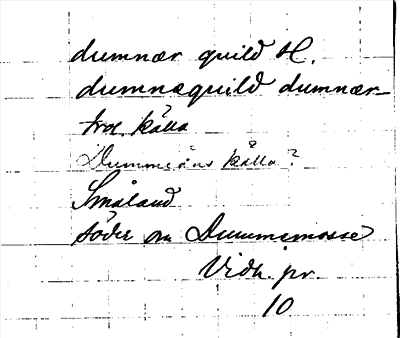 dumnær quild H.
dumnæquild dumnær-
trol källa
Dummeåns källa?
Småland
söder om Dummemosse
Vidh. pr.
10